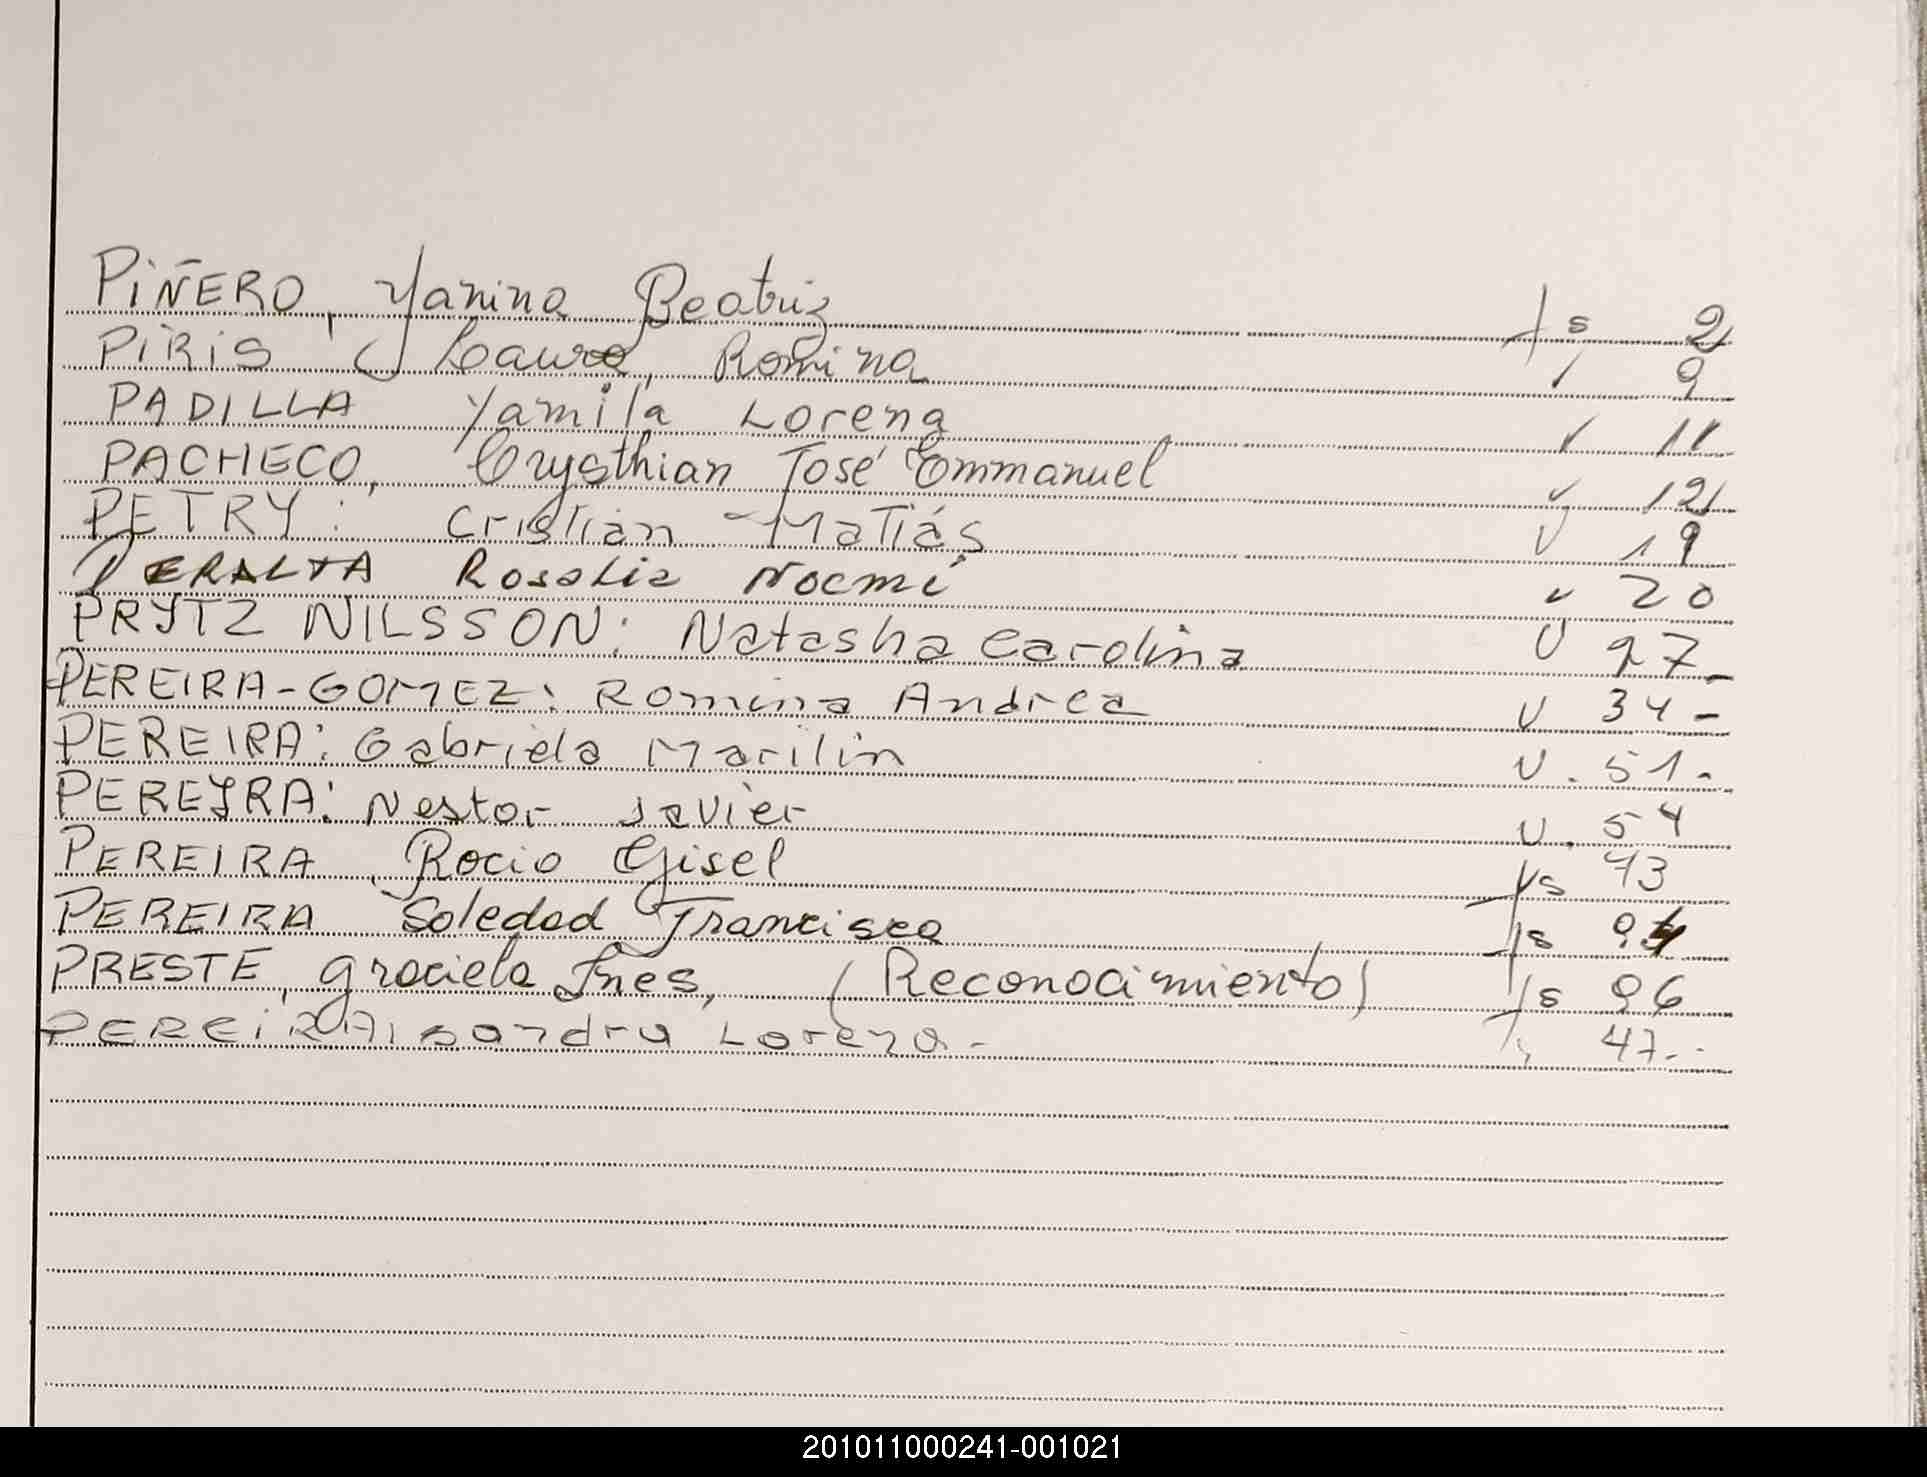 PIÑERO, Yanina Beatriz fs 2
PIRIS Laura, Romina 9
PADILLA Yamila Lorena 11
PACHECO, Crysthian José Emmanuel 12
PETRY: Cristian Matiás 19
PERALTA Rosalia Noemí 20
PRYTZ NILSSON: Natasha Carolina 27-
PEREIRA-GOMEZ: Romina Andrea 34-
PEREIRA: Gabriela Marilin 51-
PEREYRA: Nestor Javier 54
PEREIRA, Rocio Gisel fs 73
PEREIRA Soledad Francisca fs
PRESTE, Graciela Ines, (Reconocimiento) fs 96
PEREIRA, Sandra Lorena- 47-
201011000241-001021